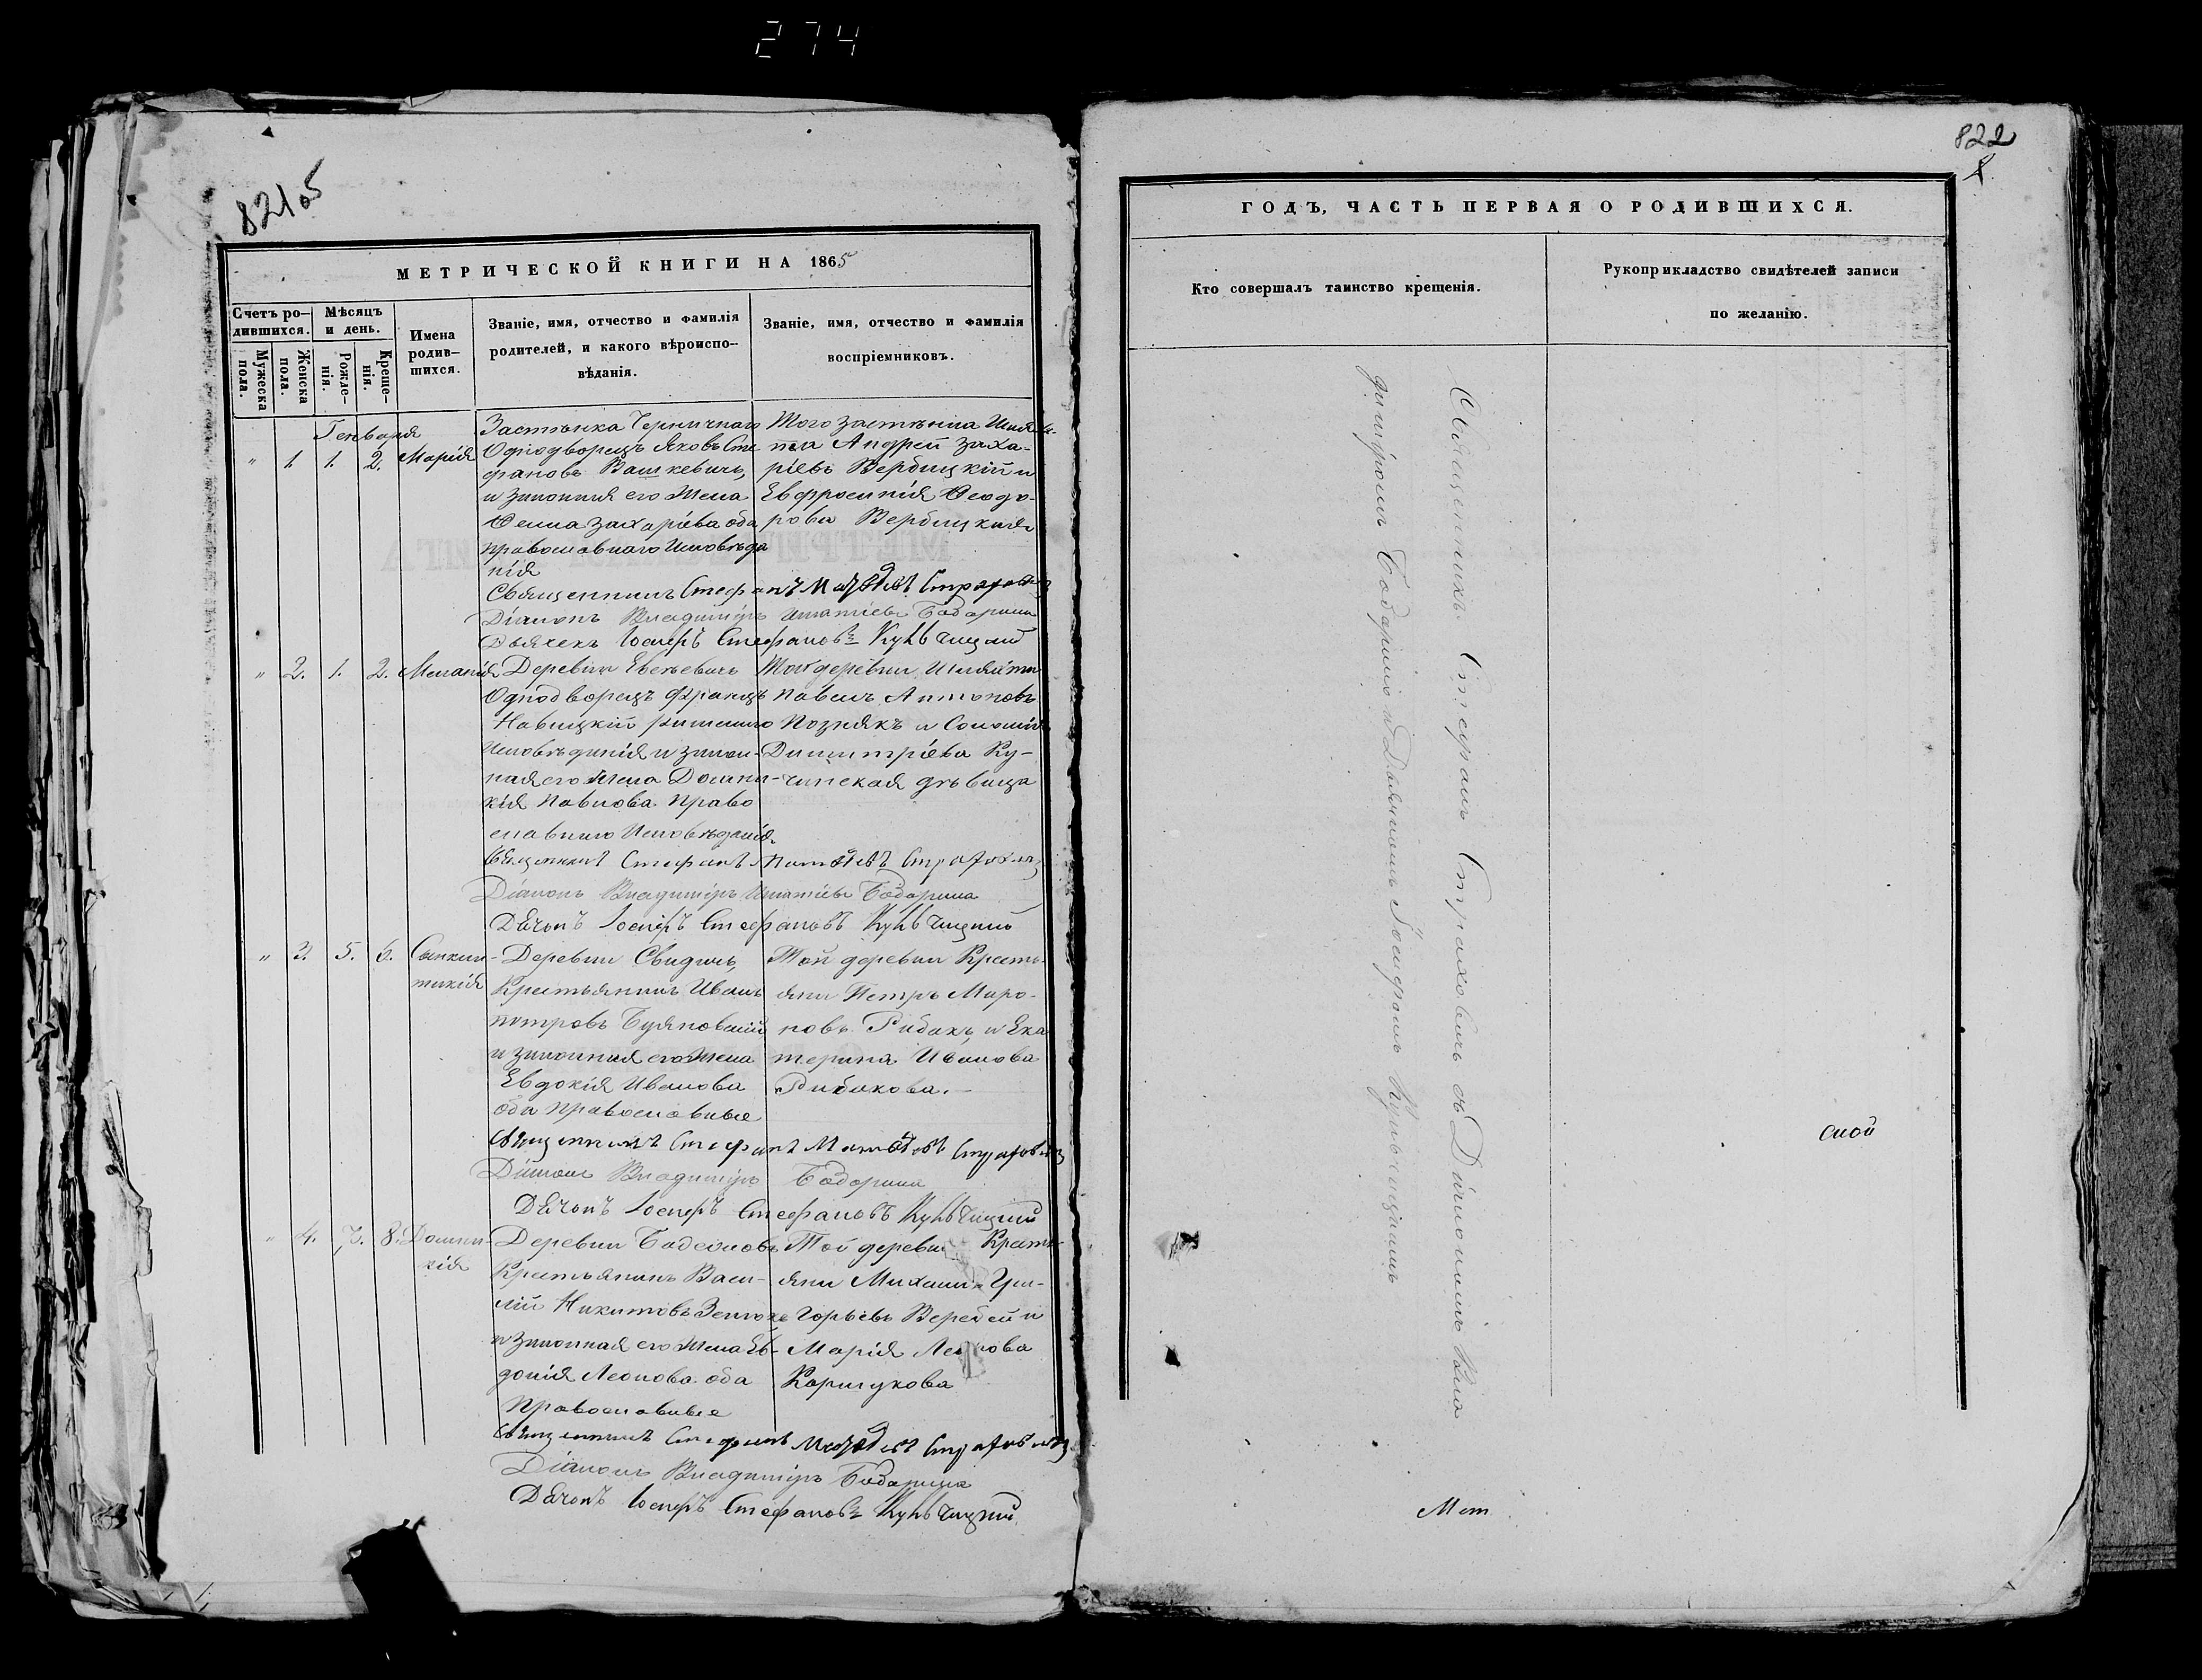 274
821об
МЕТРИЧЕСКОЙ КНИГИ НА 1865
Счетъ ро–
дившихся.
Мѣсяцъ
и день.
Имена
родив–
шихся.
Званіе, имя, отчество и фамилія
родителей, и какого вѣроиспо–
вѣданія.
Званіе, имя, отчество и фамилія
воспріемниковъ.
Мужеска
пола.
Женска
пола.
Рожде–
нія.
Креще–
нія.
Генваря
" 1. 1. 2. Марія
Застѣнка Черничнаго
Однодворецъ Яковъ Сте
фановъ Вашкевичъ,
и законная его Жена
Ѳекла Захаріева оба
православнаго Исповѣда
нія
Того застѣнка Шлях-
та Андрей Заха-
ріевъ Вербицкій и
Евфросинія Ѳеодо-
рова Вербицкая
Священникъ Стефанъ Матѳіевъ Страховичъ
Діаконъ Владиміръ Игнатіевъ Бодарина
Дьячекъ Іосифъ Стефановъ Кульчицкий
" 2. 1. 2. Меланія
Деревни
Однодворецъ Францъ
Навицкій римскаго
Исповѣданія и закон-
ная его Жена Домни-
кія Павлова Право
славнаго Исповѣданія
Той деревни Шляхта
Павелъ Антоновъ
Познякъ и Соломія
Димитріева Ку-
чинская дѣвица
Священникъ Стефанъ Матѳіевъ Страховичъ
Діаконъ Владиміръ Игнатіевъ Бодарина
Дьчокъ Іосифъ Стефановъ Кульчицкий
" 3. 5. 6. Синкли-
тикія
Деревни Свидичъ,
Крестьянинъ Иванъ
Петровъ Буяновскій
и законная его Жена
Евдокія Иванова
оба православные
Той деревни Кресть-
яни Петръ Миро-
новъ Рибакъ, и Ека
терина Иванова
Рибакова.–
Священникъ Стефанъ Матѳіевъ Страховичъ
Діаконъ Владиміръ Бодарина
Дьчокъ Іосифъ Стефановъ Кульчицкий
" 4. 7. 8. Домни-
кія
Деревни
Крестьянинъ Васи-
лій Никитовъ
и законная его Жена Ев-
докія Леонова оба
Православные
Той деревни Кресть-
яни Михаилъ Гри-
горьевъ Веребей и
Марія
Коршукова
Священникъ Стефанъ Матѳіевъ Страховичъ
Діаконъ Владиміръ Бодарина
Дьчокъ Іосифъ Стефановъ Кульчицкий
822
ГОДЪ, ЧАСТЬ ПЕРВАЯ О РОДИВШИХСЯ.
Кто совершалъ таинство крещенія.
Рукоприкладство свидѣтелей записи
по желанію.
Священникъ Стефанъ Страховичъ съ Діакономъ Вла
диміромъ Бодариною и Дьячкомъ Іосифомъ Кульчицкимъ
ской
Мет